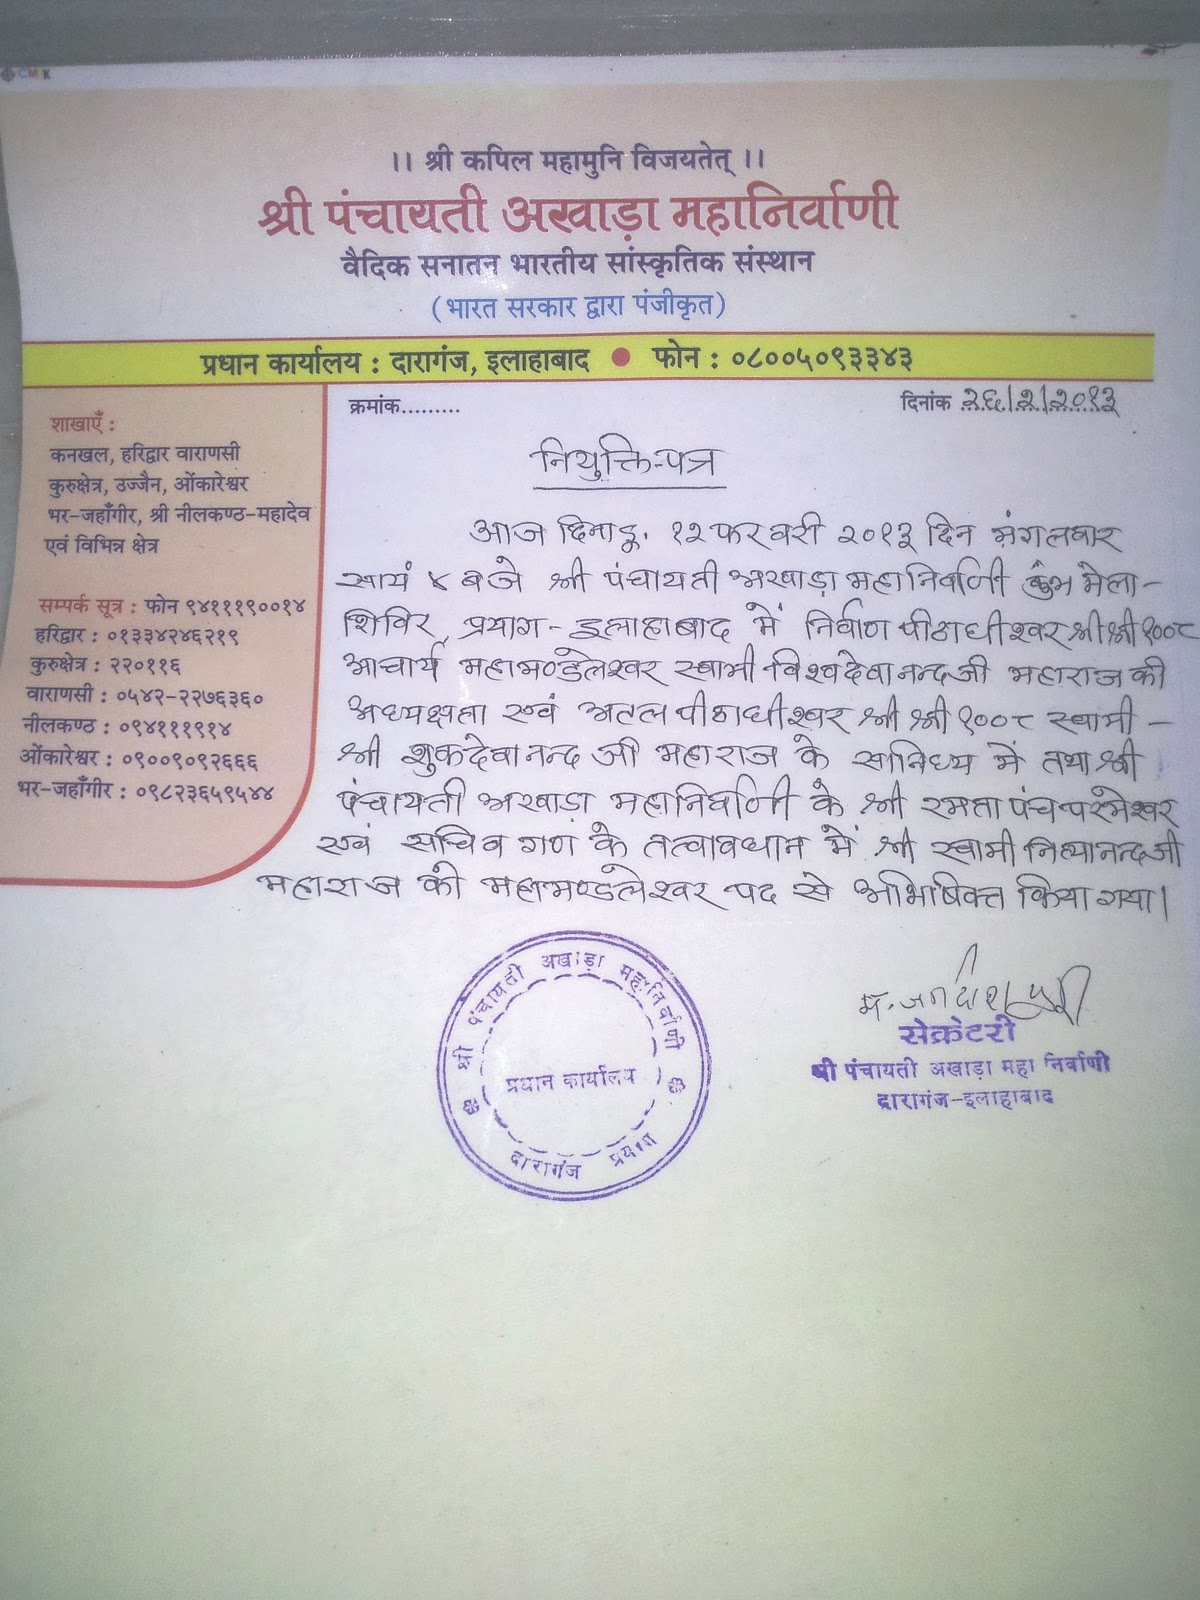 CMYK
।। श्री कपिल महामुनि विजयतेत् ।।
श्री पंचायती अखाड़ा महानिर्वाणी
वैदिक सनातन भारतीय सांस्कृतिक संस्थान
(भारत सरकार द्वारा पंजीकृत)
प्रधान कार्यालय : दारागंज, इलाहाबाद ● फोन : ०८००५०९३३४३
क्रमांक......... दिनांक २६/२/२०१३
शाखाएँ :
कनखल, हरिद्वार वाराणसी
कुरुक्षेत्र, उज्जैन, ओंकारेश्वर
भर-जहाँगीर, श्री नीलकण्ठ-महादेव
एवं विभिन्न क्षेत्र
सम्पर्क सूत्र : फोन ९४१११९००१४
हरिद्वार : ०१३३४२४६२१९
कुरुक्षेत्र : २२०११६
वाराणसी : ०५४२-२२७६३६०
नीलकण्ठ : ०९४१११९१४
ओंकारेश्वर : ०९००९०९२६६६
भर-जहाँगीर : ०९८२३६५९५४४
नियुक्ति-पत्र
आज दिनाङ्क. १२ फरवरी २०१३ दिन मंगलवार
सायं ४ बजे श्री पंचायती अखाड़ा महानिर्वाणी कुंभ मेला-
शिविर, प्रयाग-इलाहाबाद में निर्वाण पीठाधीश्वर श्री श्री १००८
आचार्य महामण्डलेश्वर स्वामी विश्वदेवानन्द जी महाराज की
अध्यक्षता एवं अटल पीठाधीश्वर श्री श्री १००८ स्वामी -
श्री शुकदेवानन्द जी महाराज के सानिध्य में तथा श्री
पंचायती अखाड़ा महानिर्वाणी के श्री रमता पंच परमेश्वर
एवं सचिव गण के तत्वावधान में श्री स्वामी नित्यानन्द जी
महाराज को महामण्डलेश्वर पद से अभिषिक्त किया गया।
श्री पंचायती अखाड़ा महानिर्वाणी
प्रधान कार्यालय
दारागंज प्रयाग
सेक्रेटरी
श्री पंचायती अखाड़ा महा निर्वाणी
दारागंज-इलाहाबाद